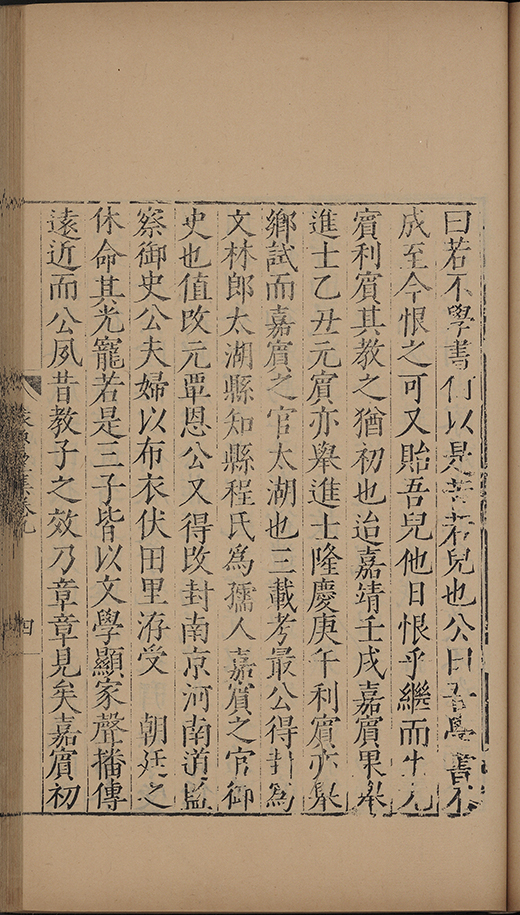 曰若不學書何以是苦若兒也公曰吾學書不
成至今恨之可又貽吾兒他日恨乎繼而生元
賓利賓其教之猶初也迨嘉靖壬戌嘉賓果舉
進士乙丑元賓亦舉進士隆慶庚午利賓亦舉
鄉試而嘉賓之官太湖也三載考最公得封為
文林郎太湖縣知縣程氏為孺人嘉賓之官御
史也值改元覃恩公又得改封南京河南道監
察御史公夫婦以布衣伏田里洊受　朝廷之
休命其光寵若是三子皆以文學顯家聲播傳
遠近而公夙昔教子之效乃章章見矣嘉賓初
卷九
四